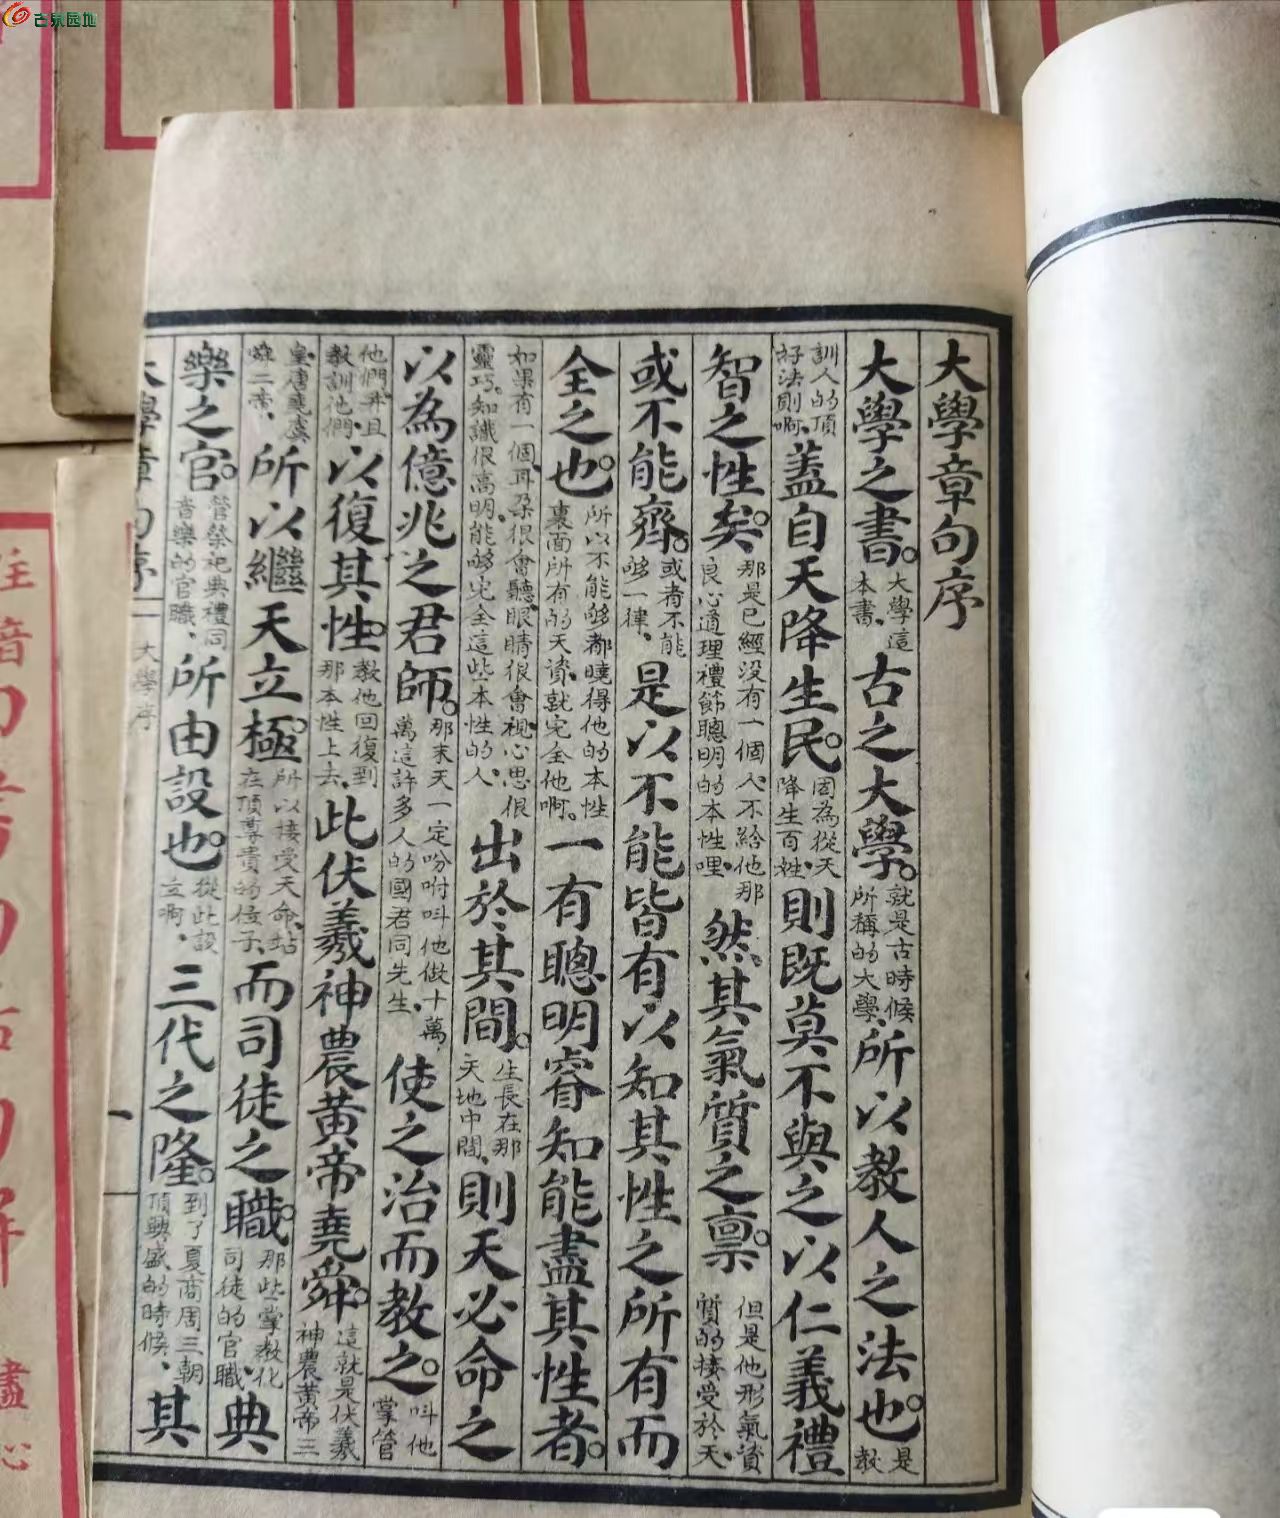 古泉园地
大學章句序
大學之書。大學這本書、古之大學。就是古時候所稱的大學、所以教人之法也。是教
訓人的頂好法則啊、蓋自天降生民。因為從天降生百姓、則既莫不與之以仁義禮
智之性矣。那是已經没有一個人、不給他那良心道理禮節聰明的本性哩、然其氣質之禀。但是他形氣資質的接受於天、
或不能齊。或者不能够一律、是以不能皆有以知其性之所有而
全之也。所以不能够都曉得他的本性裏面所有的天資、就完全他啊。一有聰明睿知能盡其性者。
如果有一個、耳朵很會聽、眼睛很會視、心思很靈巧、知識很高明、能够完全這些本性的人、出於其間。生長在那天地中間、則天必命之
以為億兆之君師。那末天一定吩咐叫他做十萬、萬這許多人的國君同先生、使之治而教之。叫他掌管
他們、并且教訓他們、以復其性。教他回復到那本性上去、此伏羲神農黄帝堯舜。這就是伏羲神農黄帝三
皇、唐堯虞舜二帝、所以繼天立極。所以接受天命、站在頂尊貴的位子、而司徒之職。那些掌教化司徒的官職、典
樂之官。管祭祀典禮同音樂的官職、所由設也。從此設立啊、三代之隆。到了夏商周三朝頂興盛的時候、其
大學章句序
大學序
一
註